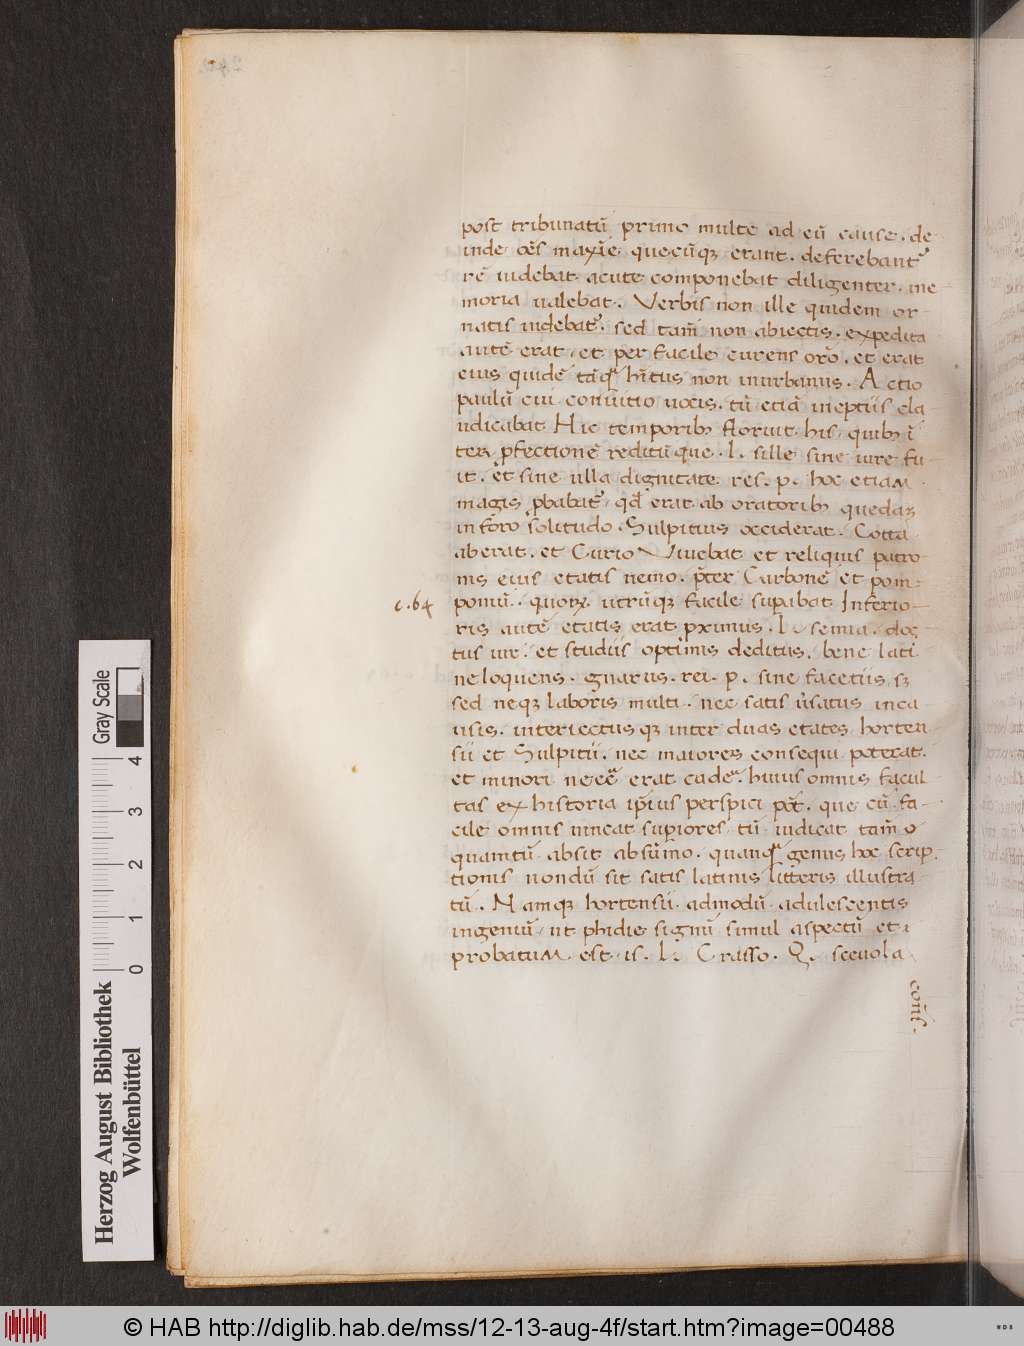 post tribunatū primo multe ad eū cause. de
inde oēs maxīe quecūqꝫ erant. deferebant᷑
rē uidebat acute componebat diligenter. me
moria ualebat. Verbis non ille quidem or
natis uidebat᷑. sed tam̄ non abiectis. expedita
autē erat. et per facile currens orō. et erat
eius quidē tāqᷓ hītus non inurbanus. Actio
paulū cui conuitio uocis. tū etiā ineptiis cla
udicabat Hic temporibꝫ floruit his. quibꝫ ī
teꝝ ꝑfectionē reditūque. l. sille sine iure fu
it. et sine ulla dignitate res. p. hoc etiam
magis ꝓbabat᷑. qd̄ erat ab oratoribꝫ quedaꝫ
in foro solitudo. Sulpitius occiderat. Cotta
aberat. et Curio Viuebat et reliquis patro
nis eius etatis nemo. p̄ter Carbonē et pom
c. 64 poniū. quoꝝ. utrūqꝫ facile supabat Inferio
ris autē etatis erat ꝓximus. L. semia. doc
tus uir. et studiis optimis deditus. bene lati
ne loquens. gnarus. rei. p. sine facetiis sꝫ
sed neqꝫ laboris multi. nec satis ūsatus in ca
usis. interiectus qꝫ inter duas etates horten
sii et Sulpitii. nec maiores consequi poterat.
et minori necē᷑ erat cade᷑. huius omnis facul
tas ex historia ip̄ius perspici pōt. que cū fa
cile omnis uincat supiores. tū iudicat tam̄ o
quamtū absit absūmo. quanqᷓ genus hoc scrip
tionis nondū sit satis latinis litteris illustra
tū. Namqꝫ hortensii. admodū. adulescentis
ingeniū. ut phidie signū simul aspectū et
probatum est. is. L. Crasso. Q. sceuola
cōns̄.
Gray Scale
4
3
2
1
0
Herzog August Bibliothek
Wolfenbüttel
© HAB http://diglib.hab.de/mss/12-13-aug-4f/start.htm?image=00488